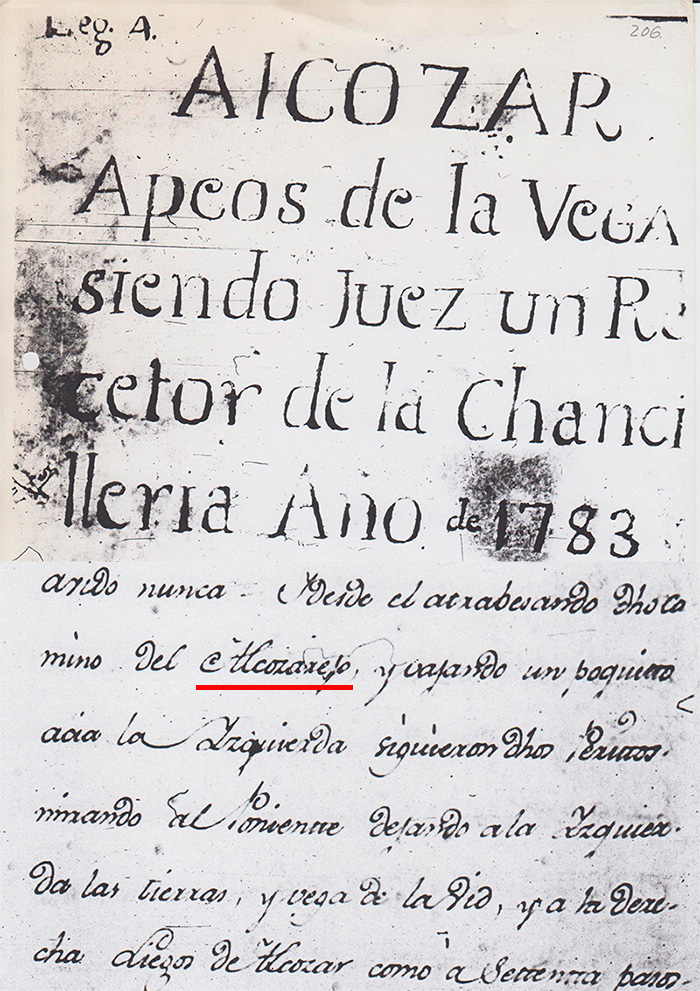 Leg. A.
206.
AlCOZAR
Apeos de la VeGA
siendo Juez un Re
cetor de la Chanci
lleria Año de 1783
arido nunca Desde el atrabesando dho ca
mino del Alcozarejo, y vajando un poquitto
acia la Izquierda siguieron dhos Peritos
mirando al Poniente dejando a la Izquier-
da las tierras, y vega de la Vid, y a la dere-
cha Liegos de Alcozar como à Settenta pasos